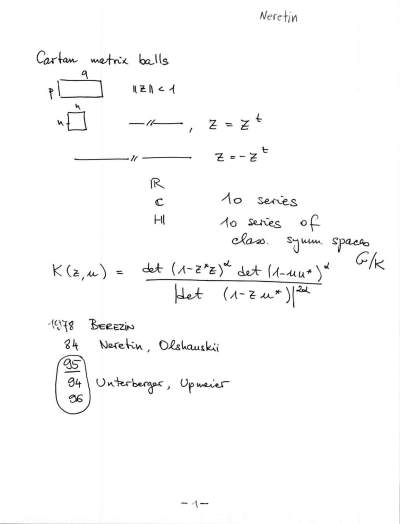 Neretin
Cartan metrix balls
q
p ‖z‖ < 1
n
n —〃— , z = z^t
—〃— z = -z^t
ℝ
ℂ 10 series
ℍ 10 series of
class. symm. spaces
G/K
K(z,u) = det (1-z*z)^α det (1-uu*)^α / |det (1-zu*)|^2α
1978 BEREZIN
84 Neretin, Olshauskii
95
94 Unterberger, Upmeier
96
-1-